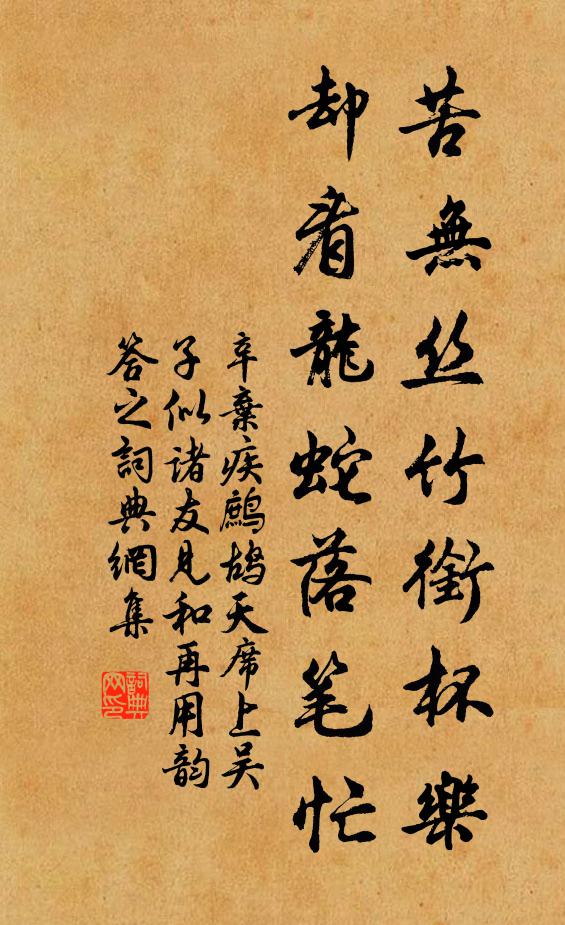 苦無丝竹銜杯樂
却看龍蛇落笔忙
辛棄疾鷓鴣天席上吴
子似诸友見和再用韵
答之詞典網集
詞典
网印